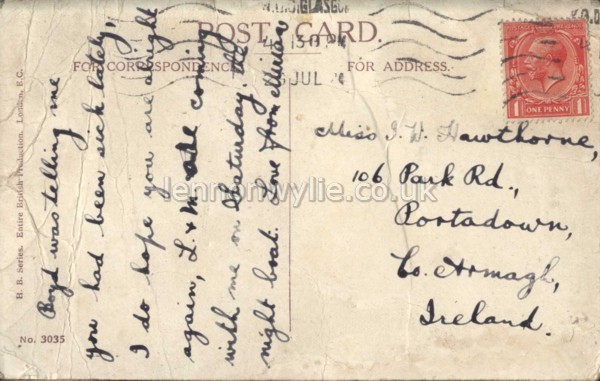 POST CARD.
FOR CORRESPONDENCE
FOR ADDRESS.
GLASGOW
13
JUL
ONE PENNY
Boyd was telling me
you had been sick lately,
I do hope you are alright
again, L. & M are coming
with me on Saturday. the
night boat. Love from Muriel
Miss I. W. Hawthorne,
106 Park Rd.,
Portadown,
Co. Armagh,
Ireland.
H. B. Series. Entire British Production. London, E.C.
No. 3035
lennonwylie.co.uk